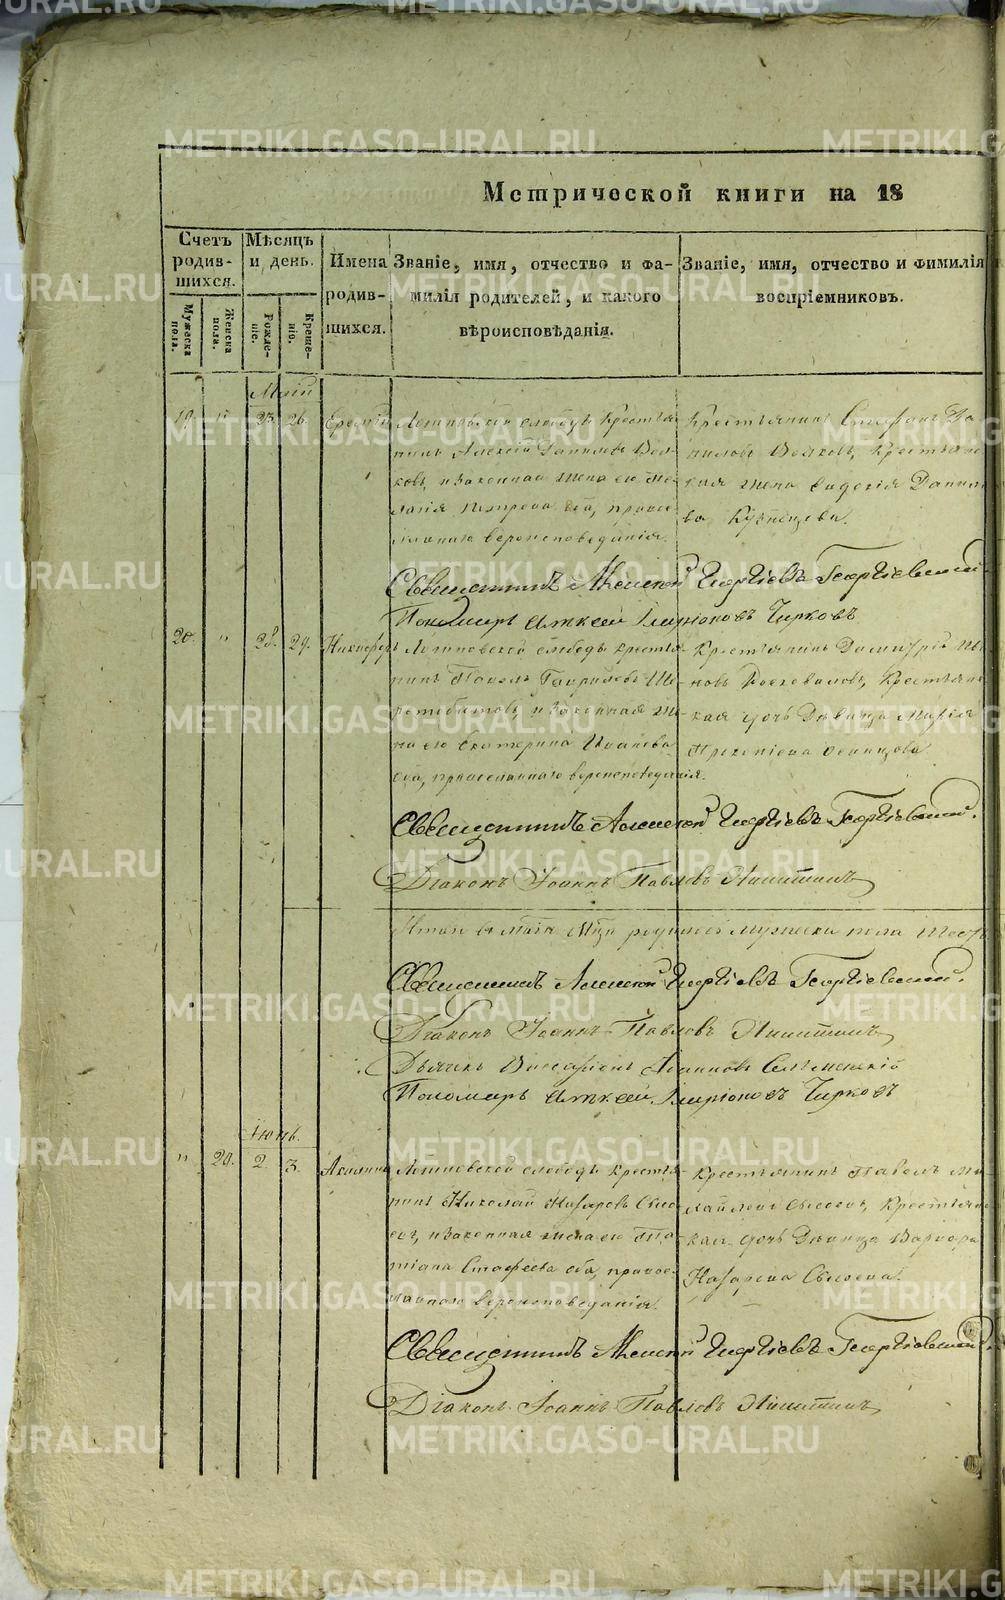 Метрической книги на 18
Счетъ родив-шихся.
Мужеска пола.
Женска пола.
Мѣсяцъ и день.
Рожде-ніе.
Креще-нію.
Имена родив-шихся.
Званіе, имя, отчество и фа-
милія родителей, и какого
вѣроисповѣданія.
Званіе, имя, отчество и фимилія
воспріемниковъ.
Май
19. " 23. 26.
слободѣ крестья-
нинъ Алексѣй Даниловъ
ковъ, и законная жена его
Петрова оба, правос-
лавнаго вероисповеданія.
Крестьянинъ Стефанъ Да-
ниловъ Крестьянс-
кая жена Данил-
ва Кузнецова.
Священникъ Алексей Георгіевъ Георгіевский
Пономарь Алексей Иларіоновъ Чирковъ
20. " 28. 29. Никифоръ
Логиновской слободѣ кресть-
нинъ Павелъ Гавриловъ
и законная же-
на его Екатерина Иванова
оба, православнаго вероисповеданія.
Крестьянинъ Димитрій
новъ Крестьянс-
кая дочь Дѣвица Марія
Священникъ Алексей Георгіевъ Георгіевский.
Діаконъ Іоаннъ Павловъ Никитинъ
Итого въ Маіѣ родилось мужеска пола
Священникъ Алексей Георгіевъ Георгіевский.
Діаконъ Іоаннъ Павловъ Никитинъ
Дьячекъ Виссаріонъ Іоанновъ
Пономарь Алексей Иларіоновъ Чирковъ
Іюнь.
" 20. 2. 3. Акилина
Логиновской слободѣ кресть-
нинъ Николай Назаровъ Сысо-
евъ, и законная жена его Та-
тіана Стафеева оба, правос-
лавнаго вероисповеданія.
Крестьянинъ Павелъ Ми-
хайловъ Сысоевъ, Крестьянс-
кая дочь Дѣвица Варвара
Назарова Сысоева.
Священникъ Алексей Георгіевъ Георгіевский.
Діаконъ Іоаннъ Павловъ Никитинъ
METRIKI.GASO-URAL.RU